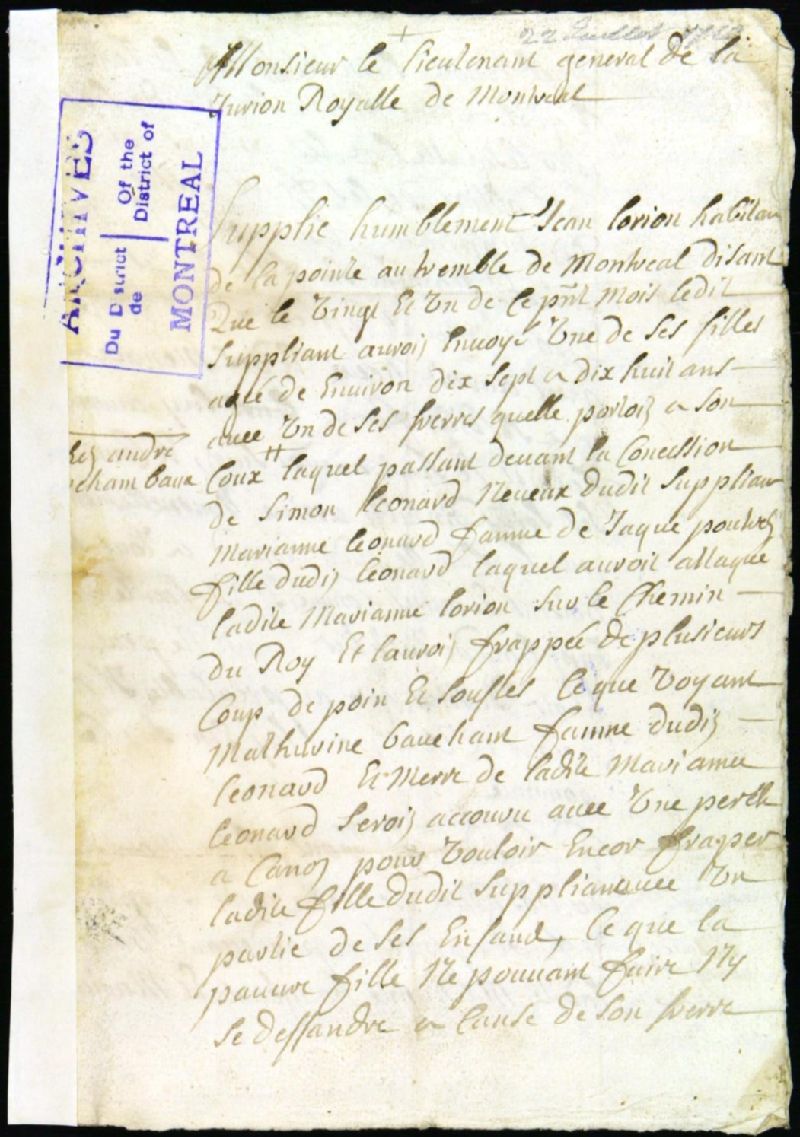 22 Juillet
Monsieur le lieutenant general de la
Jurion Royalle de Montreal
ARCHIVES
Du District Of the
de District of
MONTREAL
Supplie humblement Jean lorion habitan
de la pointe au tremble de Montreal disant
Que le vingt Et un de ce pñt Mois ledit
Suppliant auroit Envoye Une de ses filles
agée de Environ dix sept a dix huit ans
avec un de ses frerres quelle portoit a son
Coux laquel passant devant la Concession
de Simon leonard Neveux dudit Suppliant
Marianne leonard famme de Jaque
fille dudit leonard laquel auroit attaque
ladite Marianne lorion sur le Chemin
du Roy Et lauroit frappée de plusieurs
Coup de poin Et soufles Ce que voyant
Mathurine bauchant famme dudit
leonard Et Merre de ladite Marianne
leonard Seroit accouru avec Une
a Canot pour vouloir Encor fraper
ladite fille dudit Suppliant avec Un
partie de ses Enfand, Ce que la
pauvre fille Ne pouvant faire Ny
se deffandre a Cause de son frerre
andré
chambaux